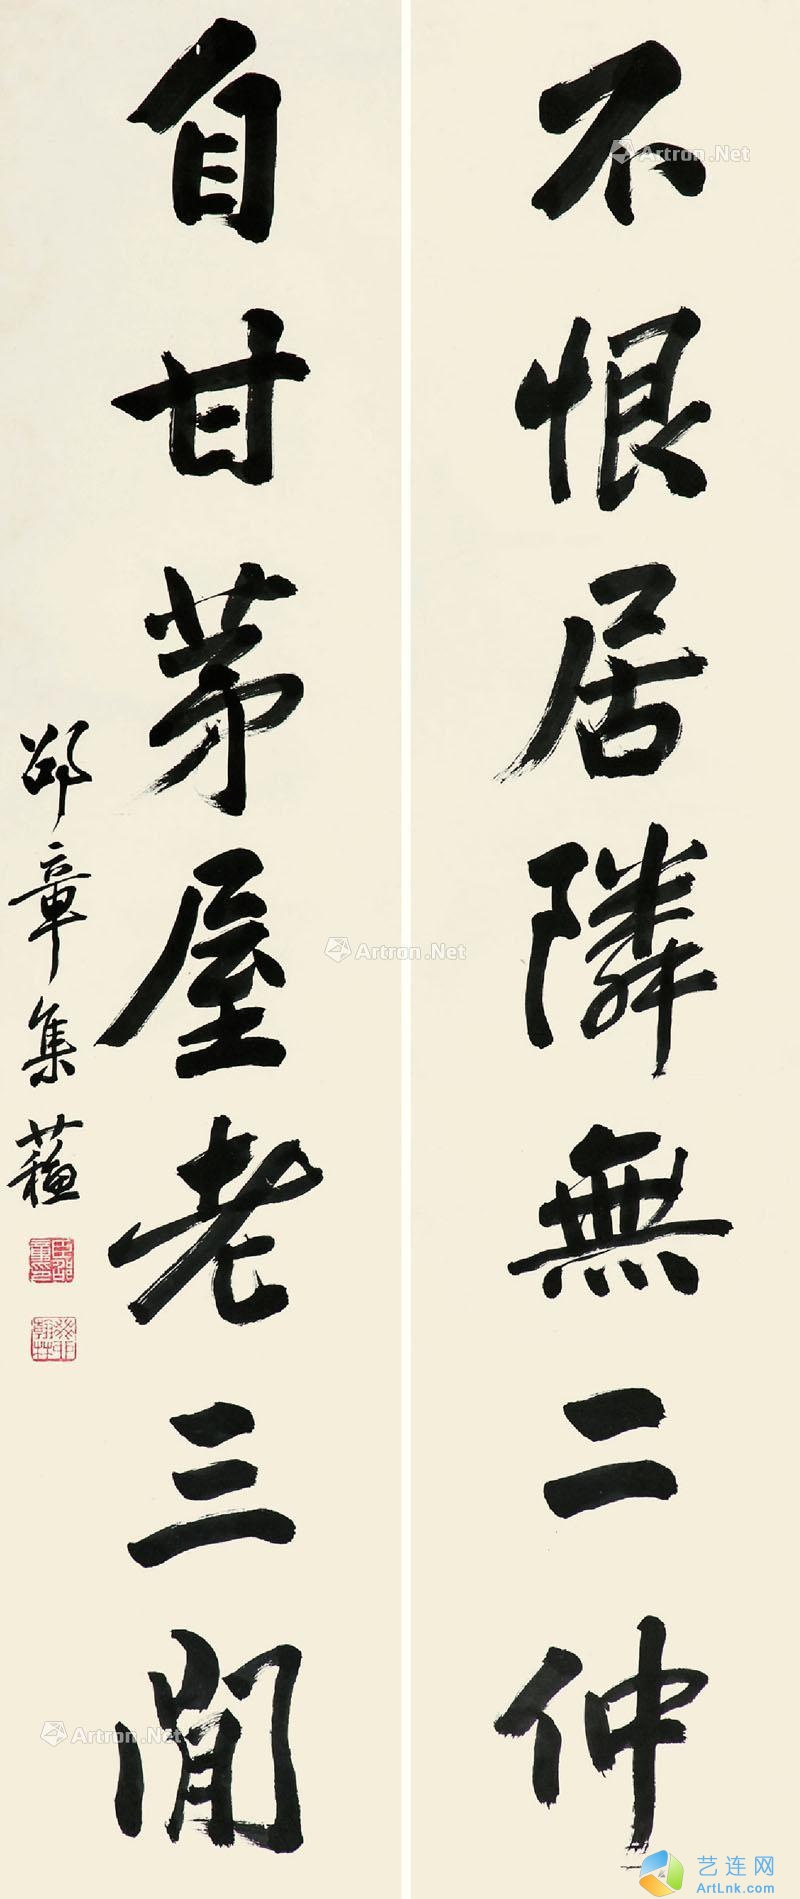 不恨居隣無二仲
自甘茅屋老三閒
邵章集蘓
Artron.Net
Artron.Net
Artron.Net
艺连网
ArtLnk.com